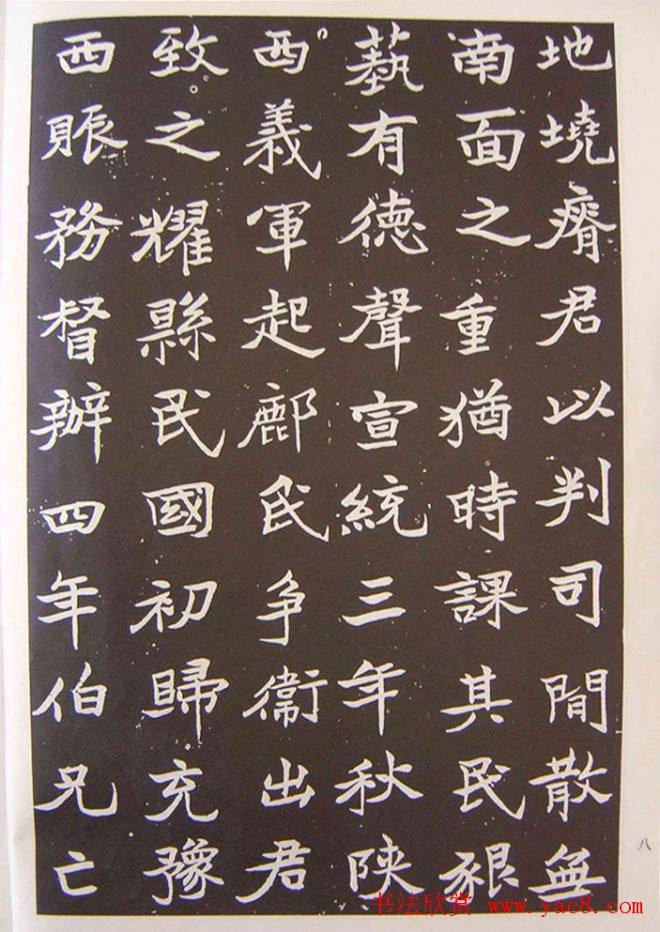 地墝瘠君以判司閒散無
南面之重猶時課其民視
藝有德聲宣統三年秋陝
西義軍起鄜民爭衛出君
致之耀縣民國初歸充豫
西賑務督辦四年伯兄亡
八
书法欣赏 www.yac8.com